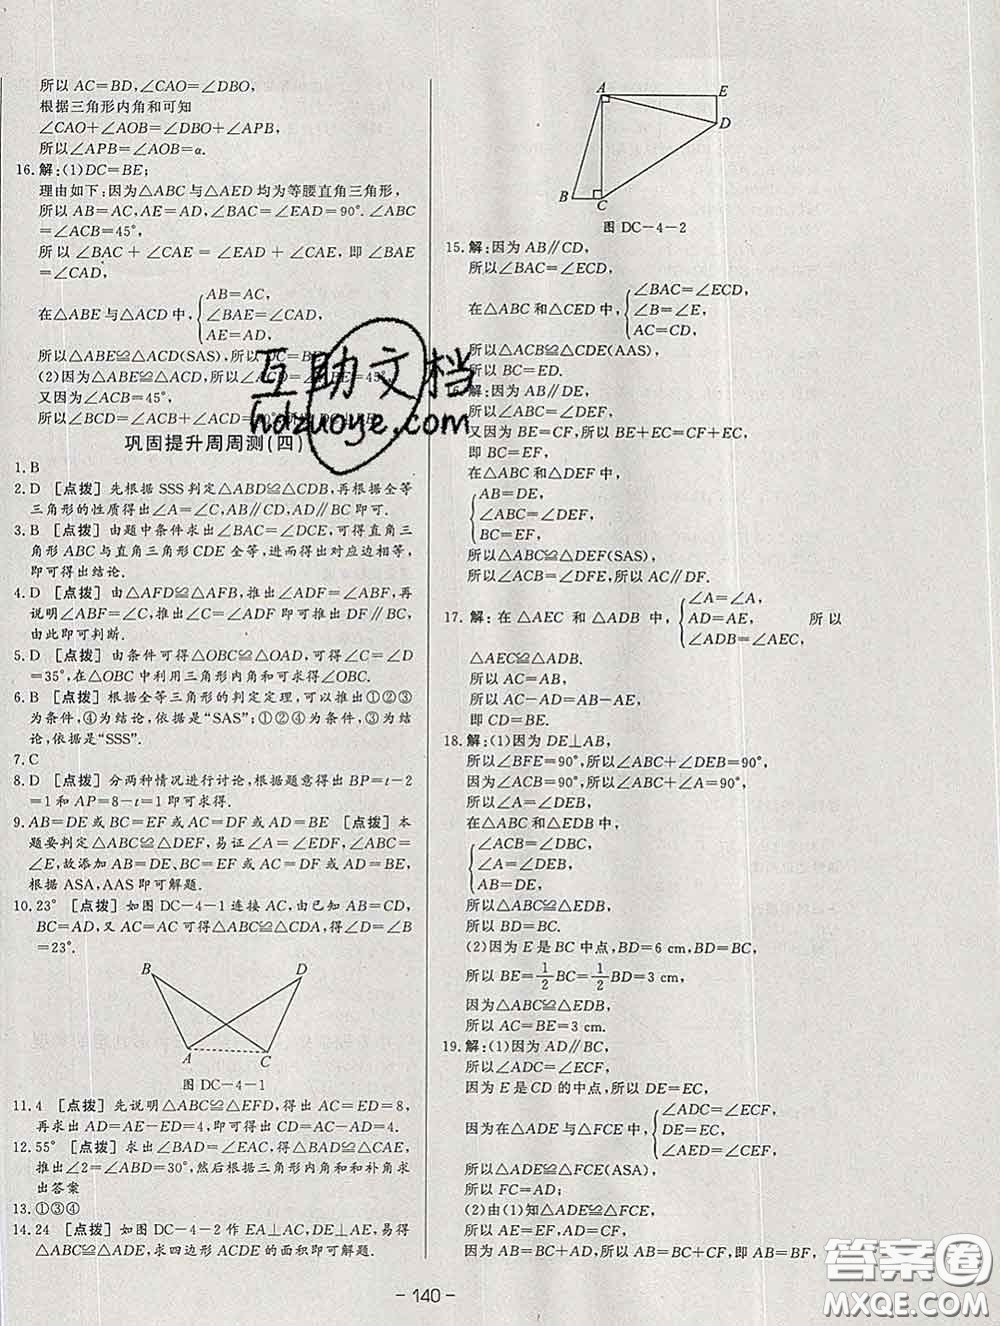 所以 AC=BD,∠CAO=∠DBO,
根据三角形内角和可知
∠CAO+∠AOB=∠DBO+∠APB,
所以∠APB=∠AOB=α.
16.解:(1)DC=BE;
理由如下:因为△ABC与△AED均为等腰直角三角形,
所以 AB=AC,AE=AD,∠BAC=∠EAD=90°.∠ABC
=∠ACB=45°,
所以 ∠BAC + ∠CAE = ∠EAD + ∠CAE,即 ∠BAE
=∠CAD,
在△ABE与△ACD中,
AB=AC,
∠BAE=∠CAD,
AE=AD,
所以△ABE≌△ACD(SAS),所以 DC=BE;
(2)因为△ABE≌△ACD,所以∠ACD=∠ABE=45°,
又因为∠ACB=45°,
所以∠BCD=∠ACB+∠ACD=90°,所以
巩固提升周周测(四)
1.B
2.D [点拨] 先根据 SSS 判定△ABD≌△CDB,再根据全等
三角形的性质得出∠A=∠C,AB∥CD,AD∥BC 即可.
3.B [点拨] 由题中条件求出∠BAC=∠DCE,可得直角三
角形 ABC 与直角三角形 CDE 全等,进而得出对应边相等,
即可得出结论.
4.D [点拨] 由△AFD≌△AFB,推出∠ADF=∠ABF,再
说明∠ABF=∠C,推出∠C=∠ADF 即可推出 DF∥BC,
由此即可判断.
5.D [点拨] 由条件可得△OBC≌△OAD,可得∠C=∠D
=35°,在△OBC中利用三角形内角和可求得∠OBC.
6.B [点拨] 根据全等三角形的判定定理,可以推出①②③
为条件,④为结论,依据是“SAS”;①②④为条件,③为结
论,依据是“SSS”.
7.C
8.D [点拨] 分两种情况进行讨论,根据题意得出 BP=t-2
=1和 AP=8-t=1即可求得.
9.AB=DE或BC=EF或AC=DF或AD=BE [点拨] 本
题要判定△ABC≌△DEF,易证∠A=∠EDF,∠ABC=
∠E,故添加 AB=DE、BC=EF 或 AC=DF 或 AD=BE,
根据 ASA,AAS 即可解题.
10.23° [点拨] 如图 DC-4-1 连接 AC,由已知 AB=CD,
BC=AD,又 AC=AC 可得△ABC≌△CDA,得∠D=∠B
=23°.
B
D
A
C
图 DC-4-1
11.4 [点拨] 先说明△ABC≌△EFD,得出 AC=ED=8,
再求出 AD=AE-ED=4,即可得出 CD=AC-AD=4.
12.55° [点拨] 求出∠BAD=∠EAC,得△BAD≌△CAE,
推出∠2=∠ABD=30°,然后根据三角形内角和和补角求
出答案
13.①③④
14.24 [点拨] 如图 DC-4-2 作 EA⊥AC,DE⊥AE,易得
△ABC≌△ADE,求四边形 ACDE 的面积即可解题.
A
E
D
B
C
图 DC-4-2
15.解:因为 AB∥CD,
所以∠BAC=∠ECD,
在△ABC 和△CED中,
∠BAC=∠ECD,
∠B=∠E,
AC=CD,
所以△ACB≌△CDE(AAS),
所以 BC=ED.
16.解:因为 AB∥DE,
所以∠ABC=∠DEF,
又因为 BE=CF,所以 BE+EC=CF+EC,
即 BC=EF,
在△ABC 和△DEF中,
AB=DE,
∠ABC=∠DEF,
BC=EF,
所以△ABC≌△DEF(SAS),
所以∠ACB=∠DFE,所以 AC∥DF.
17.解:在 △AEC 和 △ADB 中,
∠A=∠A,
AD=AE,
∠ADB=∠AEC,
所以
△AEC≌△ADB.
所以 AC=AB,
所以 AC-AD=AB-AE,
即 CD=BE.
18.解:(1)因为 DE⊥AB,
所以∠BFE=90°,所以∠ABC+∠DEB=90°,
因为∠ACB=90°,所以∠ABC+∠A=90°,
所以∠A=∠DEB,
在△ABC 和△EDB中,
∠ACB=∠DBC,
∠A=∠DEB,
AB=DE,
所以△ABC≌△EDB,
所以 BD=BC.
(2)因为 E 是 BC 中点,BD=6 cm,BD=BC,
所以 BE=1/2 BC=1/2 BD=3 cm,
因为△ABC≌△EDB,
所以 AC=BE=3 cm.
19.解:(1)因为 AD∥BC,
所以∠ADC=∠ECF,
因为 E 是 CD 的中点,所以 DE=EC,
因为在△ADE与△FCE中,
∠ADC=∠ECF,
DE=EC,
∠AED=∠CEF,
所以△ADE≌△FCE(ASA),
所以 FC=AD;
(2)由(1)知△ADE≌△FCE,
所以 AE=EF,AD=CF,
因为 AB=BC+AD,所以 AB=BC+CF,即 AB=BF,
- 140 -
互助文档
hdzuoye.com
答案圈
MXQE.COM